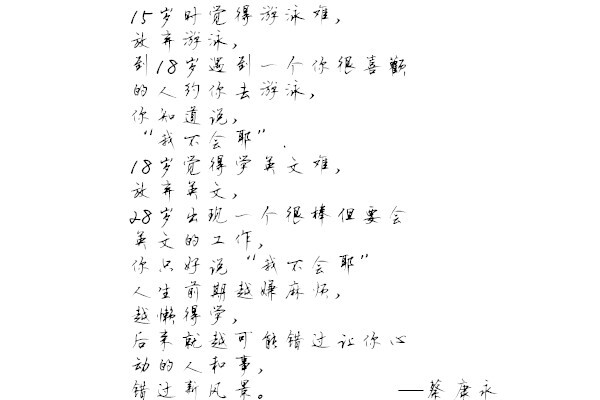 15岁时觉得游泳难，
放弃游泳，
到18岁遇到一个你很喜歡
的人约你去游泳，
你知道说，
“我不会耶”．
18岁觉得学英文难，
放弃英文，
28岁出现一个很棒但要会
英文的工作，
你只好说“我不会耶”
人生前期越嫌麻烦，
越懒得学，
后来就越可能错过让你心
动的人和事，
错过新风景。 ——蔡康永